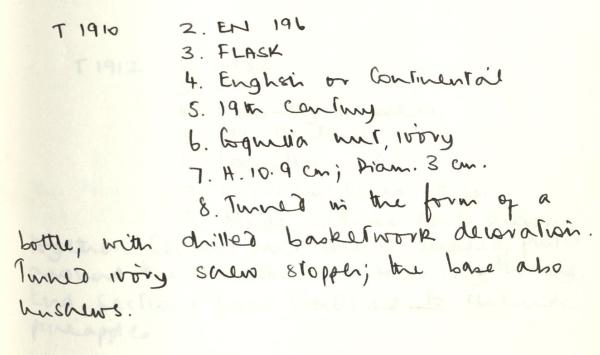 T 1910 2. EN 196
3. FLASK
4. English or Continental
5. 19th century
6. Coquilla nut, ivory
7. H. 10.9 cm; Diam. 3 cm.
8. Turned in the form of a
bottle, with drilled basketwork decoration.
Turned ivory screw stopper; the base also
unscrews.